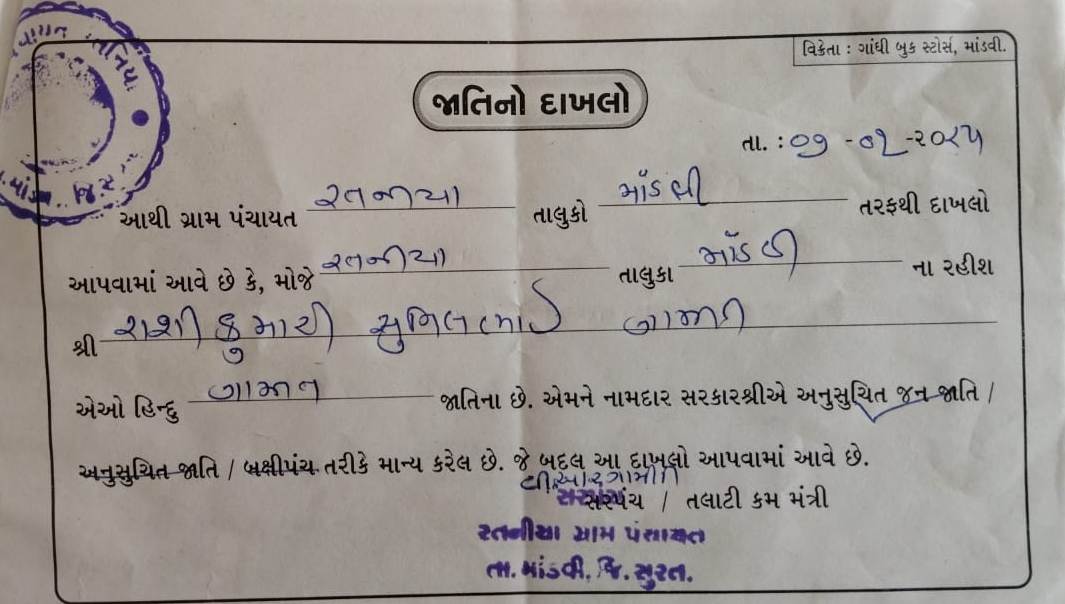 વિક્રેતા : ગાંધી બુક સ્ટોર્સ, માંડવી.
જાતિનો દાખલો
તા. : ૦૭ -૦૨ -૨૦૨૫
આથી ગ્રામ પંચાયત રતનીયા તાલુકો માંડવી તરફથી દાખલો
આપવામાં આવે છે કે, મોજે રતનીયા તાલુકા માંડવી ના રહીશ
શ્રી રાશી કુમારી સુનિલભાઈ ગામીત
એઓ હિન્દુ ગામીત જાતિના છે. એમને નામદાર સરકારશ્રીએ અનુસુચિત જન જાતિ /
અનુસુચિત જાતિ / બક્ષીપંચ તરીકે માન્ય કરેલ છે. જે બદલ આ દાખલો આપવામાં આવે છે.
સરપંચ
સરપંચ / તલાટી કમ મંત્રી
રતનીયા ગ્રામ પંચાયત
તા. માંડવી, જિ. સુરત.